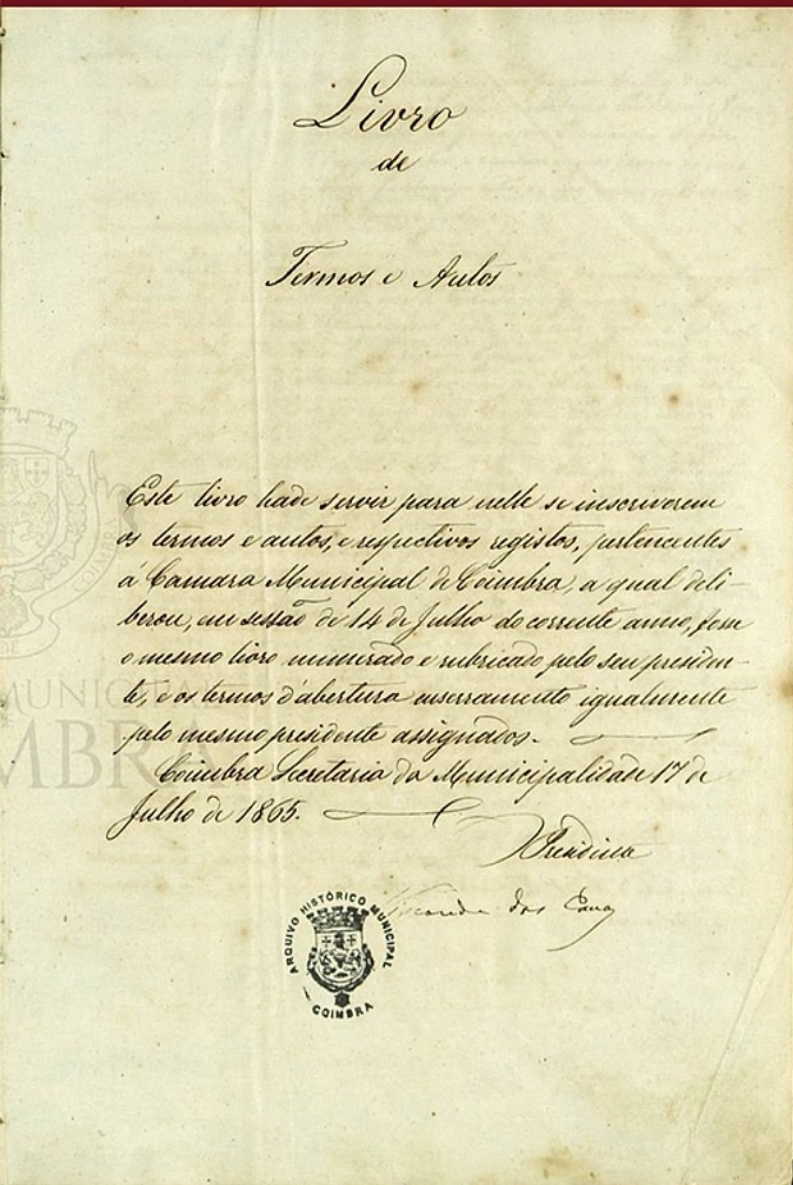 Livro
de
Termos e Autos
Este livro hade servir para nelle se inscreverem
os termos e autos, e respectivos registos, pertencentes
á Camara Municipal de Coimbra, a qual deli-
berou, em sessão de 14 de Julho do corrente anno, fosse
o mesmo livro numerado e rubricado pelo seu presiden-
te, e os termos d'abertura e encerramento igualmente
pelo mesmo presidente assignados.
Coimbra Secretaria da Municipalidade 17 de
Julho de 1865.
O Presidente
Visconde das Canas
ARQUIVO HISTÓRICO MUNICIPAL
COIMBRA